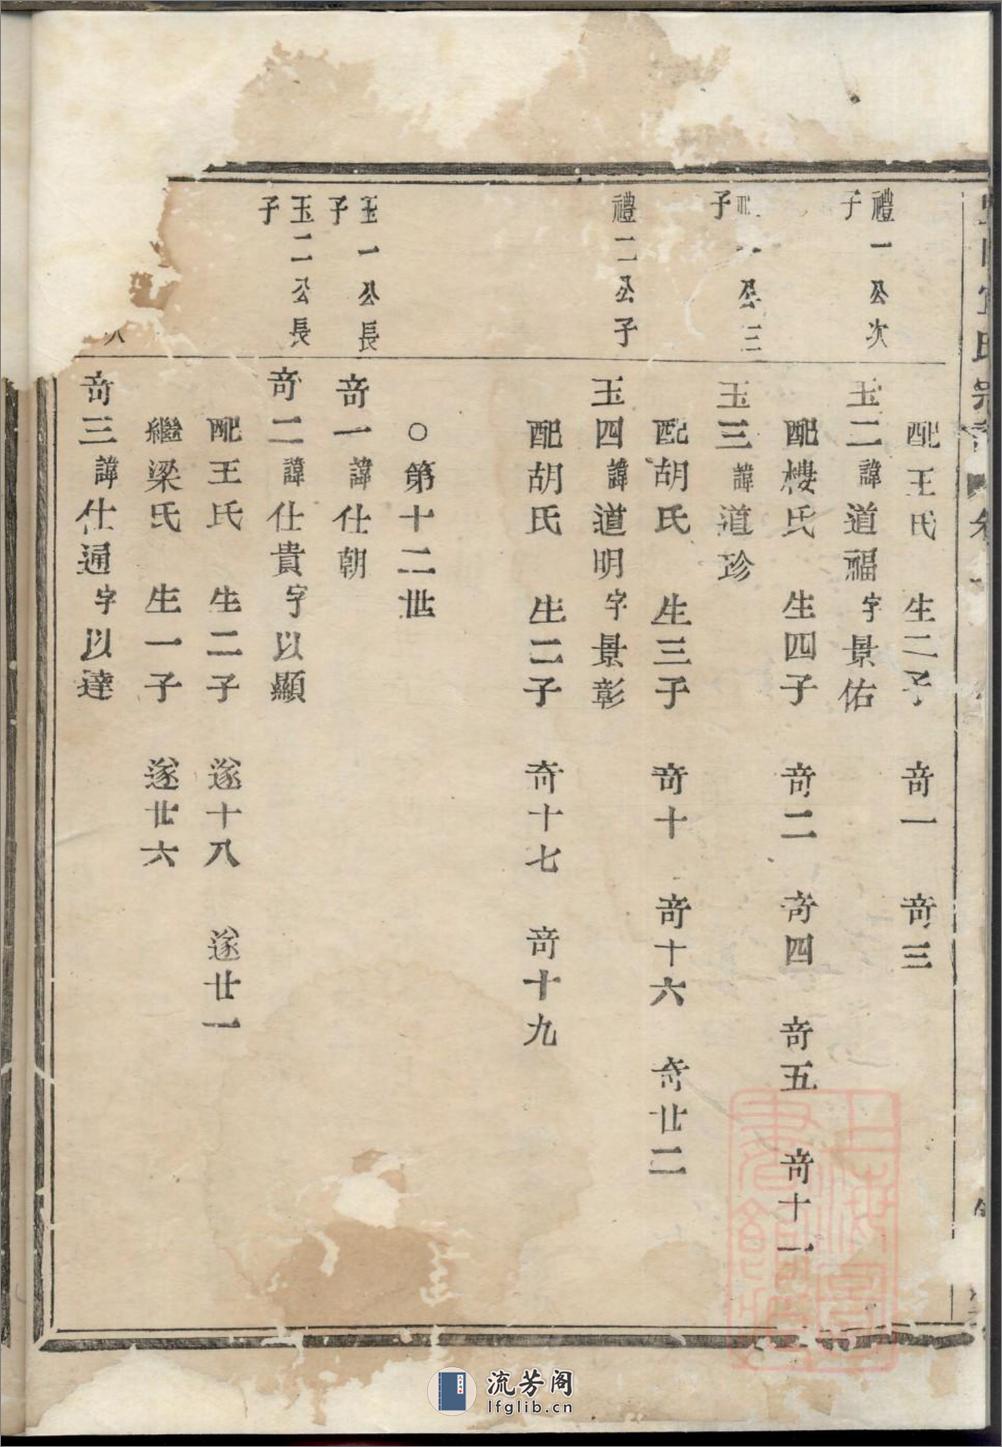 配王氏 生二子 奇一 奇三
禮一公次子
玉二諱道福字景佑
配樓氏 生四子 奇二 奇四 奇五 奇十一
公三子
玉三諱道珍
配胡氏 生三子 奇十 奇十六 奇廿二
禮二公子
玉四諱道明字景彰
配胡氏 生二子 奇十七 奇十九
○第十二世
玉一公長子
奇一諱仕朝
玉二公長子
奇二諱仕貴字以顯
配王氏 生二子 遂十八 遂廿一
繼梁氏 生一子 遂廿六
次
奇三諱仕通字以達
流芳阁
lfglib.cn